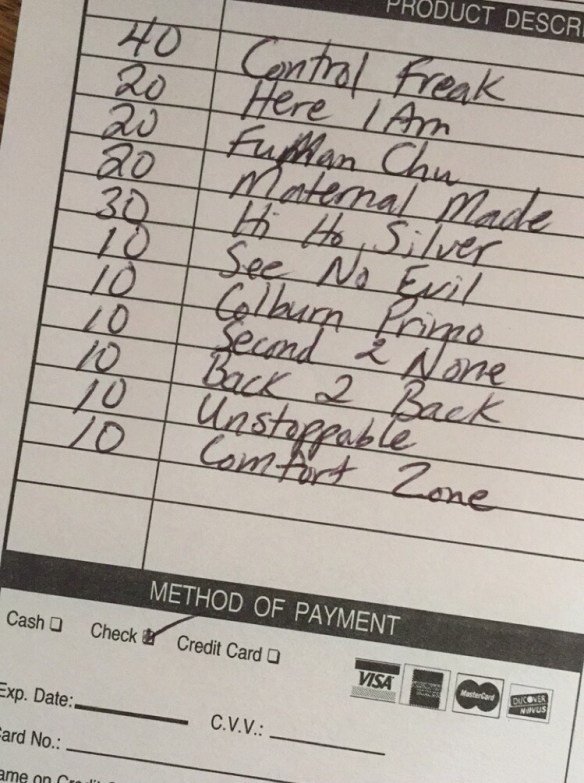 PRODUCT DESCRI
40 Control Freak
20 Here I Am
20 Fu Man Chu
20 Maternal Made
30 Hi Ho Silver
10 See No Evil
10 Colburn Primo
10 Second 2 None
10 Back 2 Back
10 Unstoppable
10 Comfort Zone
METHOD OF PAYMENT
Cash Check Credit Card
VISA MasterCard DISCOVER NOVUS
Exp. Date: C.V.V.:
Card No.:
ame on Credit